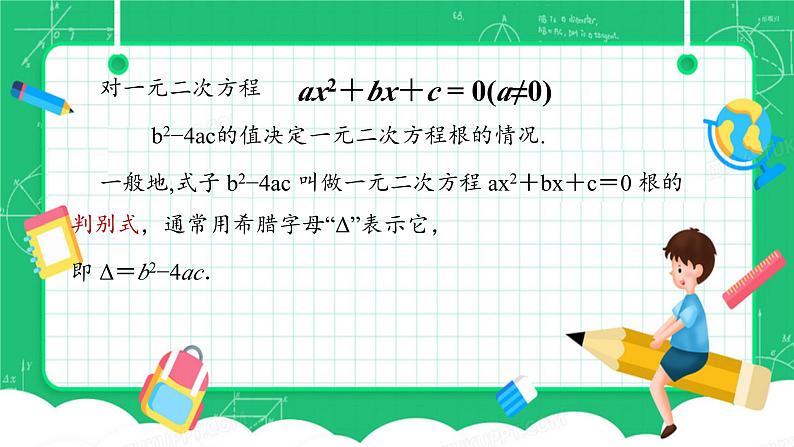 对一元二次方程 ax²＋bx＋c = 0(a≠0)
b²−4ac的值决定一元二次方程根的情况.
一般地,式子 b²−4ac 叫做一元二次方程 ax²＋bx＋c＝0 根的
判别式，通常用希腊字母“Δ”表示它，
即 Δ＝b²−4ac.